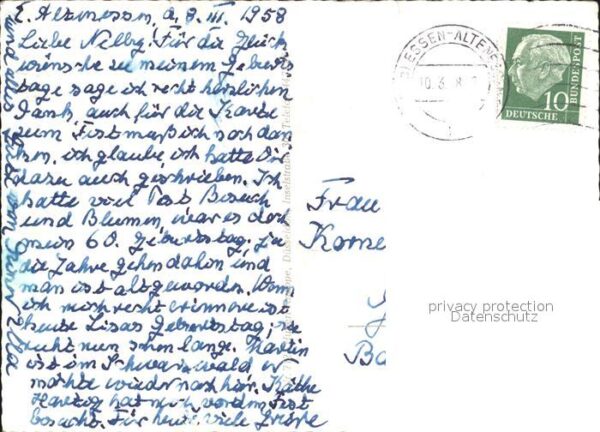 E. Altenessen, d. 8. III. 1958
Liebe Nelly! Für die Glück
wünsche zu meinem Geburts
tage sage ich recht herzlichen
Dank, auch für die Karte
zum Fest muß ich noch dan
ken, ich glaube, ich hatte Dir
dazu auch geschrieben. Ich
hatte viel Post Besuch
und Blumen, war es doch
mein 60. Geburtstag. Ja
die Jahre gehen dahin und
man ist alt geworden. Wenn
ich mich recht erinnere ist
heute Lisas Geburtstag, sie
ruht nun schon lange. Martin
ist im Schwarzwald er
möchte wieder nach hier. Käthe
Hartog hat mich vor dem Fest
besucht. Für heute viele Grüße
und alles Gute von Deiner
ESSEN-ALTENE
10.3. 8
DEUTSCHE
BUNDESPOST
10
Inselstraße
Frau
Korne
Ba
privacy protection
Datenschutz